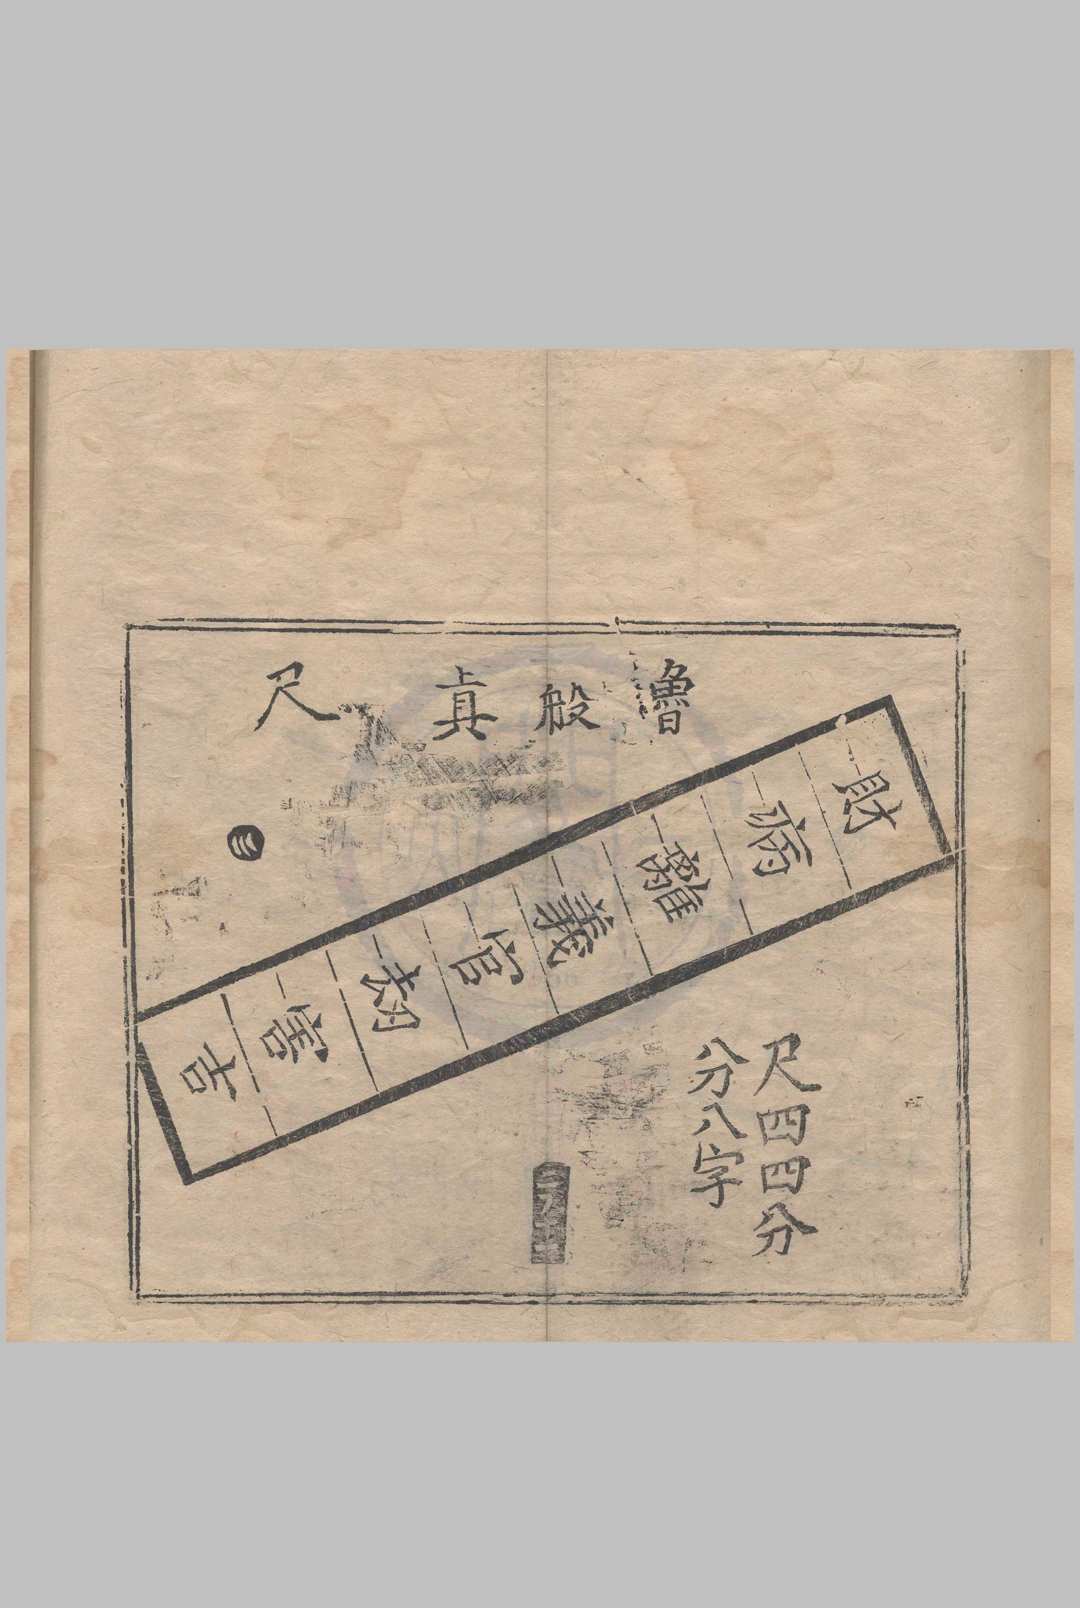 魯般真尺
財
病
離
義
官
刼
害
吉
三
尺四四分
八分八字